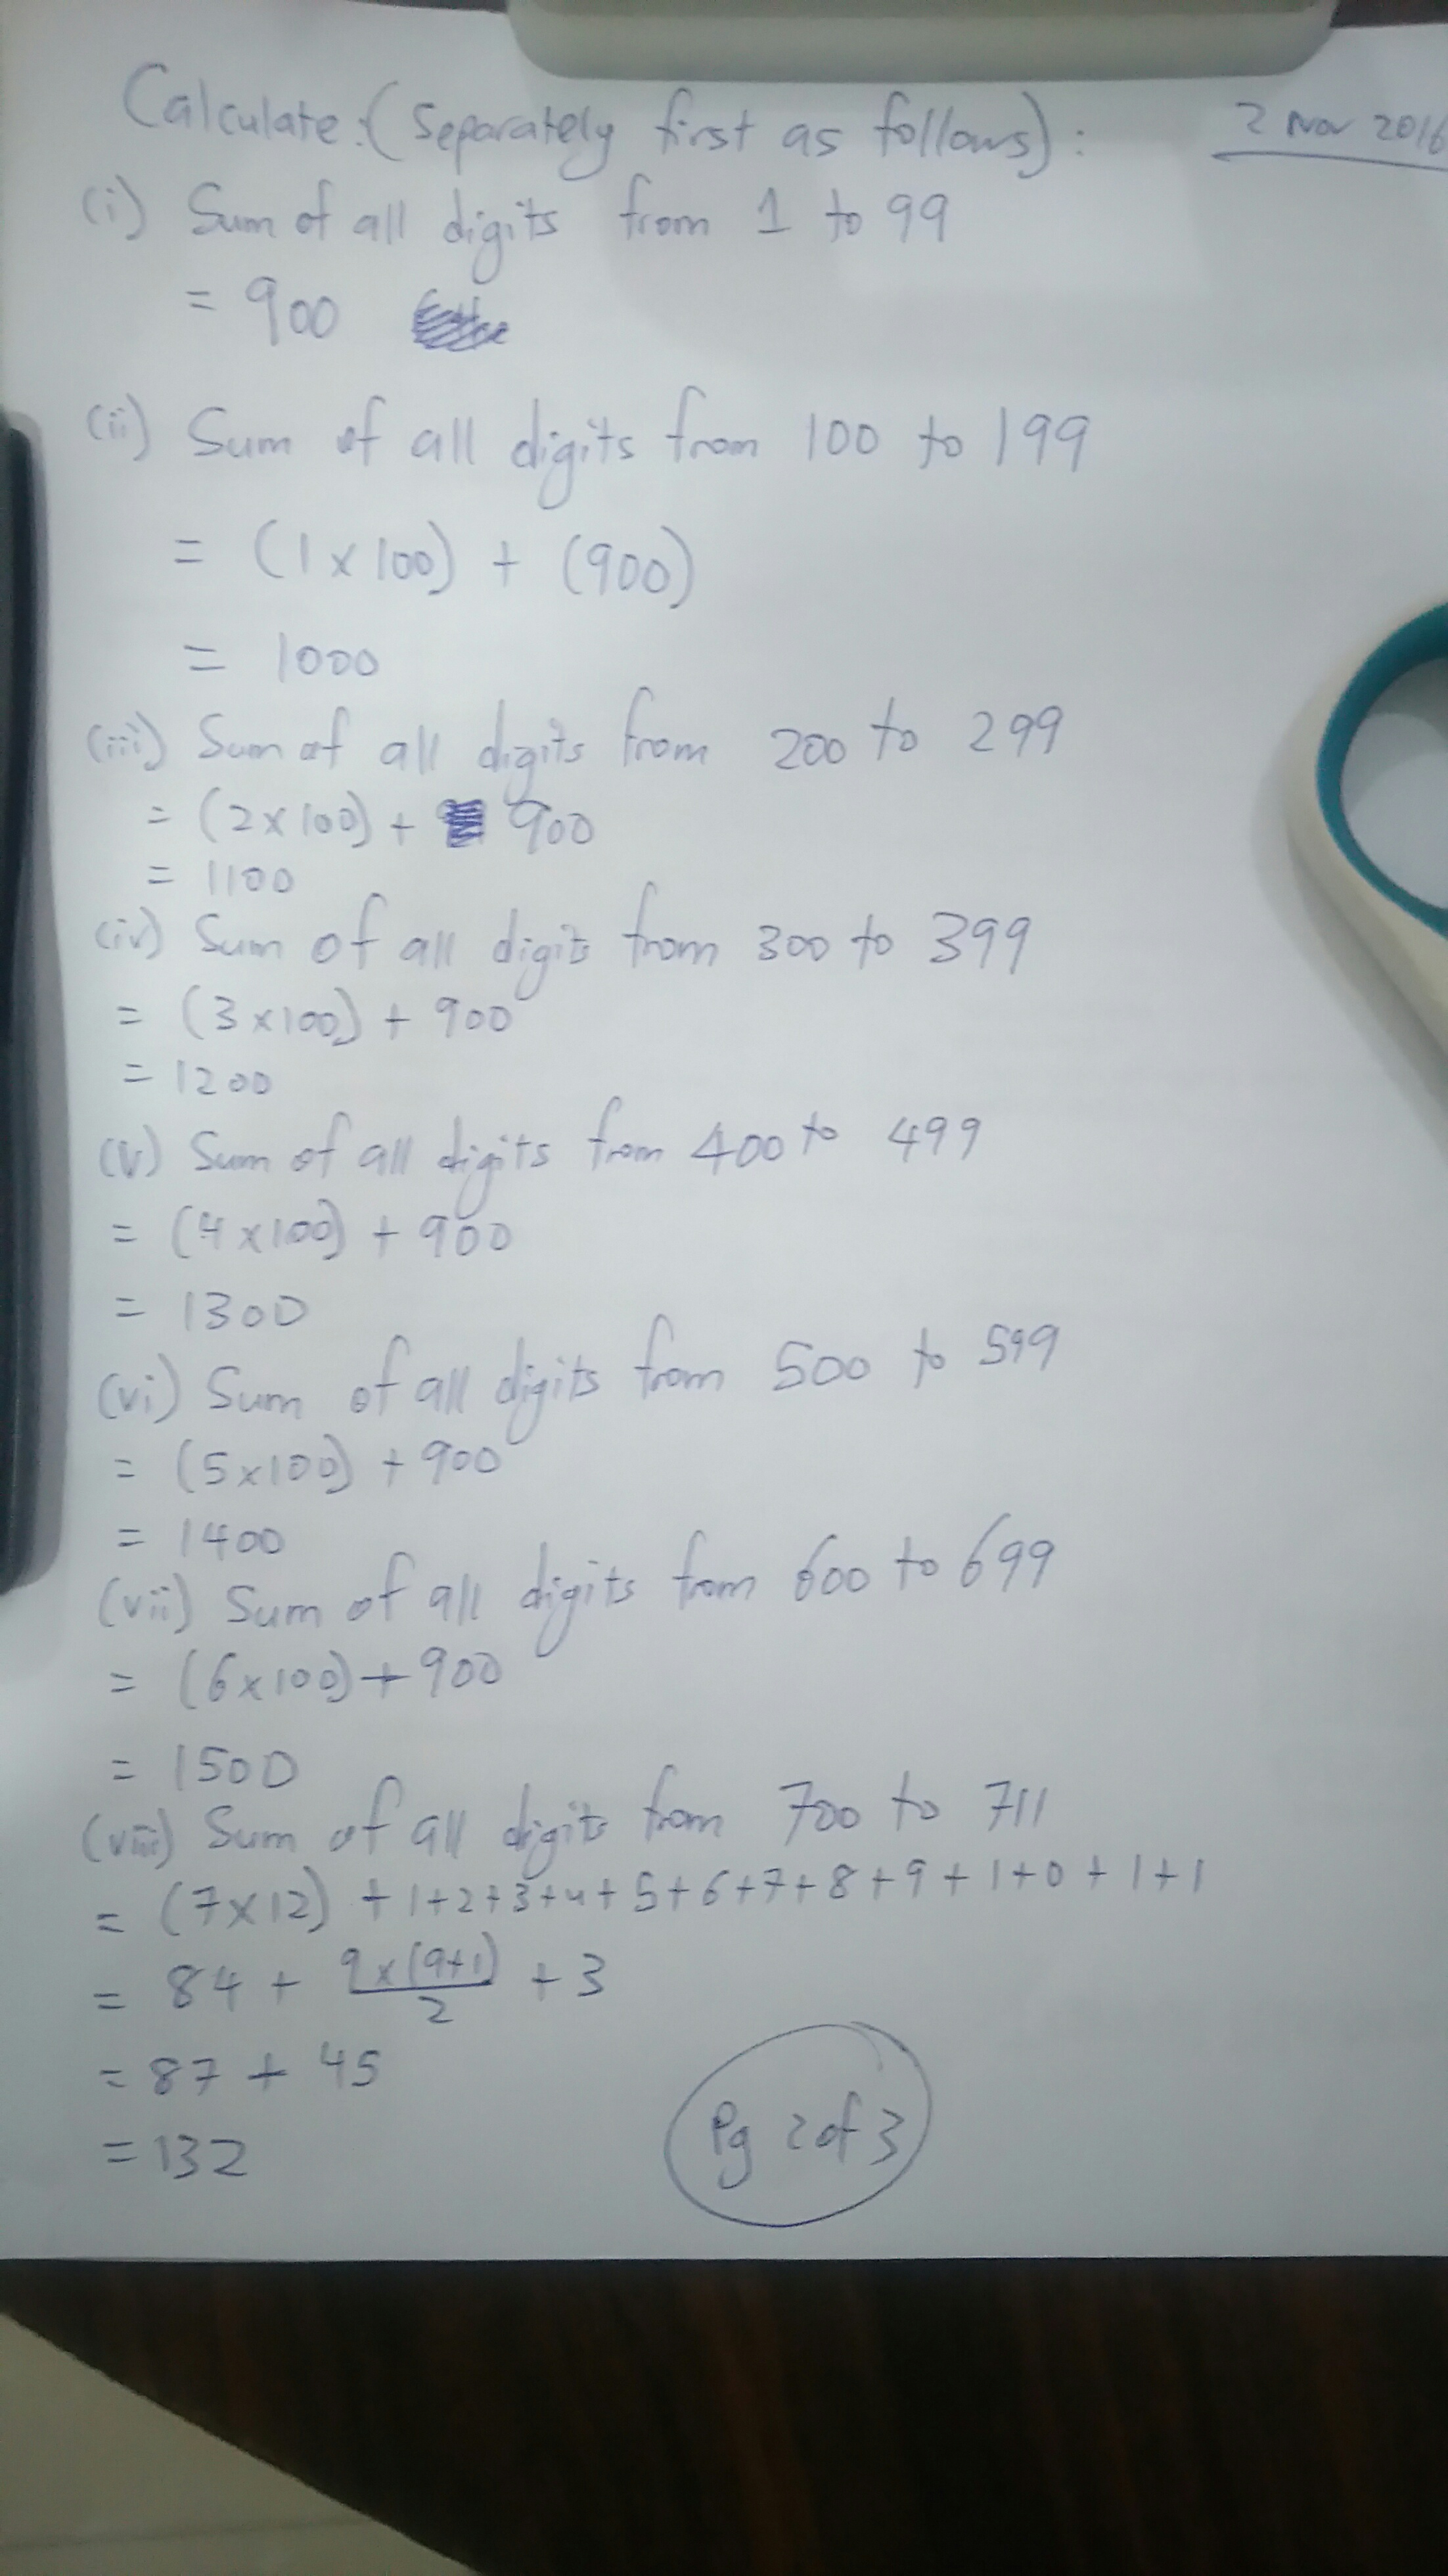 Calculate:(Separately first as follows): 2 Nov 2016
(i) Sum of all digits from 1 to 99
= 900
(ii) Sum of all digits from 100 to 199
= (1 x 100) + (900)
= 1000
(iii) Sum of all digits from 200 to 299
= (2 x 100) + 900
= 1100
(iv) Sum of all digits from 300 to 399
= (3 x 100) + 900
= 1200
(v) Sum of all digits from 400 to 499
= (4 x 100) + 900
= 1300
(vi) Sum of all digits from 500 to 599
= (5 x 100) + 900
= 1400
(vii) Sum of all digits from 600 to 699
= (6 x 100) + 900
= 1500
(viii) Sum of all digits from 700 to 711
= (7 x 12) + 1+2+3+4+5+6+7+8+9+1+0+1+1
= 84 + 9 x (9+1) / 2 + 3
= 87 + 45
= 132
Pg 2 of 3